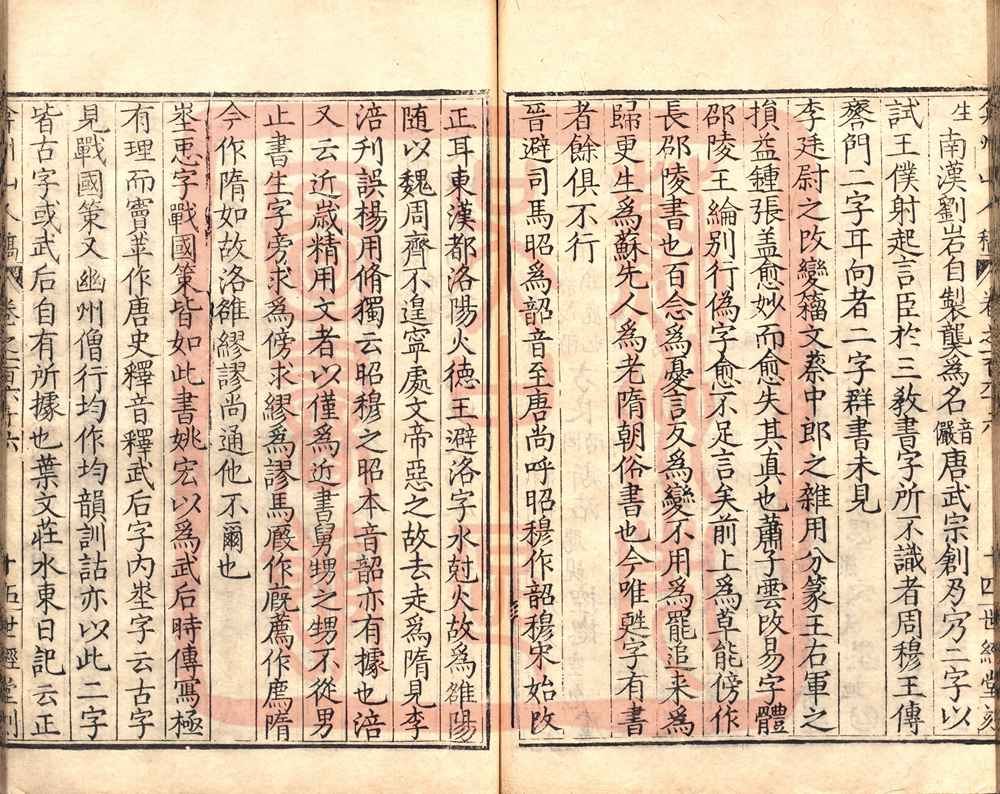 弇州山人稿 卷之百六十六 十四 世經堂刻
生南漢劉岩自製龑爲名音儼唐武宗創二字以
試王僕射起言臣於三教書字所不識者周穆王傳
二字耳向者二字群書未見
李廷尉之改變籀文蔡中郎之雜用分篆王右軍之
損益鍾張盖愈妙而愈失其真也蕭子雲改易字體
邵陵王綸别行偽字愈不足言矣前上爲草能傍作
長邵陵書也百念爲憂言反爲變不用爲罷追来爲
歸更生爲蘇先人爲老隋朝俗書也今唯甦字有書
者餘俱不行
晉避司馬昭爲韶音至唐尚呼昭穆作韶穆宋始改
正耳東漢都洛陽火德王避洛字水尅火故爲雒陽
随以魏周齊不遑寧處文帝惡之故去走爲隋見李
涪刋誤楊用脩獨云昭穆之昭本音韶亦有據也涪
又云近歳精用文者以僅爲近書舅甥之甥不從男
止書生字旁求爲傍求繆爲謬馬廏作廐薦作廌隋
今作隋如故洛雒繆謬尚通他不爾也
埊恵字戰國策皆如此書姚宏以爲武后時傳寫極
有理而竇苹作唐史釋音釋武后字内埊字云古字
見戰國策又幽州僧行均作均韻訓詁亦以此二字
皆古字或武后自有所據也葉文莊水東日記云正
弇州山人稿 卷之百六十六 十五 世經堂刻